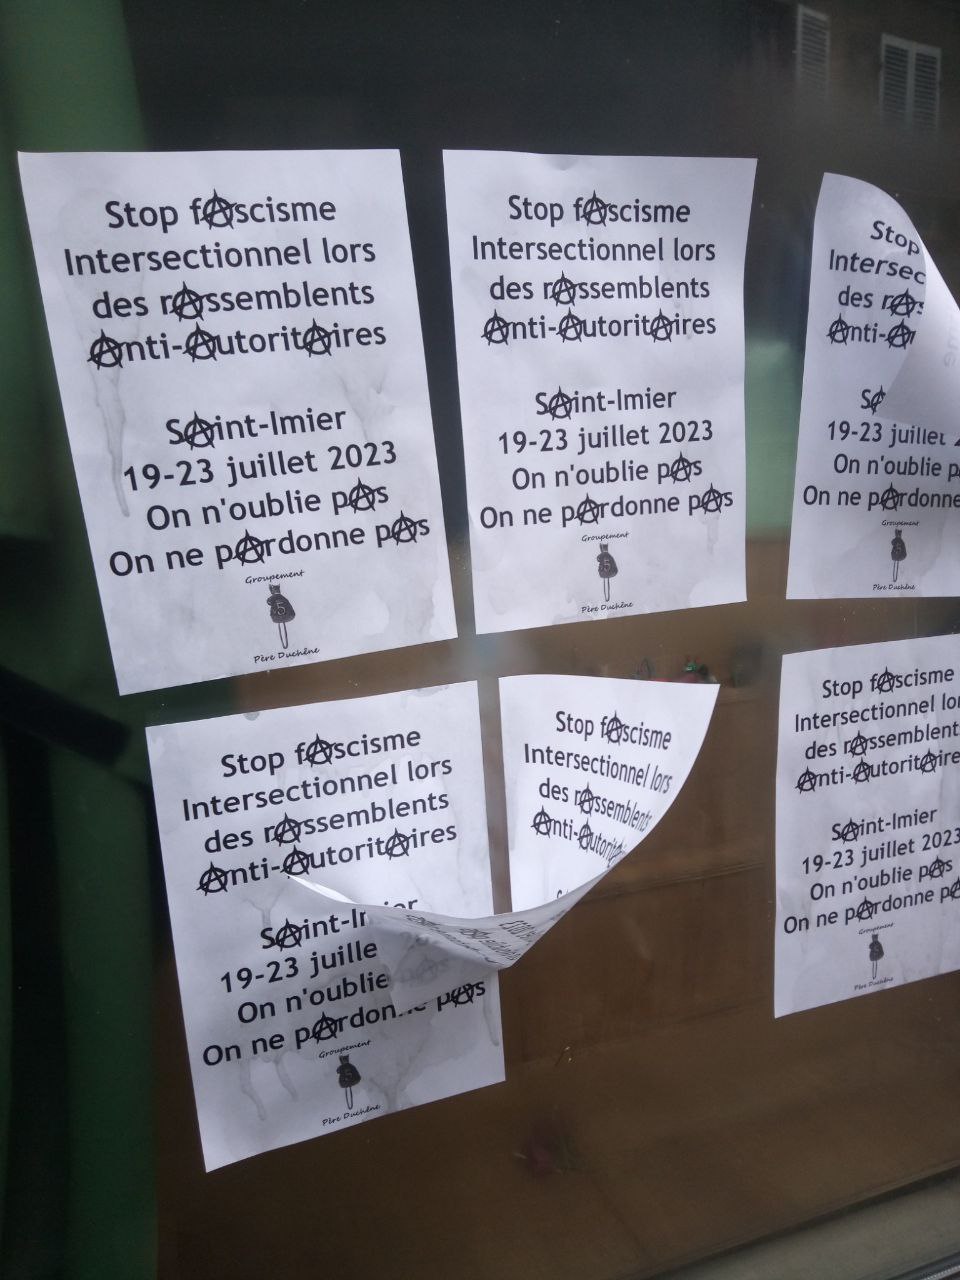 Stop fascisme
Intersectionnel lors
des rassemblents
Anti-Autoritaires
Saint-Imier
19-23 juillet 2023
On n'oublie pas
On ne pardonne pas
Groupement
5
Père Duchêne
Stop fascisme
Intersectionnel lors
des rassemblents
Anti-Autoritaires
Saint-Imier
19-23 juillet 2023
On n'oublie pas
On ne pardonne pas
Groupement
5
Père Duchêne
Stop
Intersec
des
Anti-
19-23 juillet
On n'oublie
On ne pardonne
Groupement
5
Père Duchêne
Stop fascisme
Intersectionnel lors
des rassemblents
Anti-Autoritaires
Saint-Im
19-23 juille
On n'oublie
On ne pardon pas
Groupement
5
Père Duchêne
Stop fascisme
Intersectionnel lors
des rassemblents
Anti-Autorit
Stop fascisme
Intersectionnel lor
des rassemblent
Anti-Autoritaire
Saint-Imier
19-23 juillet 2023
On n'oublie pas
On ne pardonne pa
Groupement
5
Père Duchêne